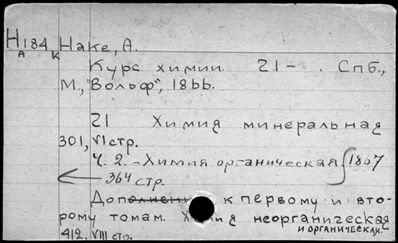 Н184 Наке, А.
А К
Курс химии. Z1- . Спб.,
М., "Вольф", 1866.
Z1 Химия минеральная
301, VI стр.
Ч. 2. - Химия органическая 1867
364 стр.
Дополнения к первому и вто-
рому томам. Химия неорганическая
и органическая.
412, VIII стр.